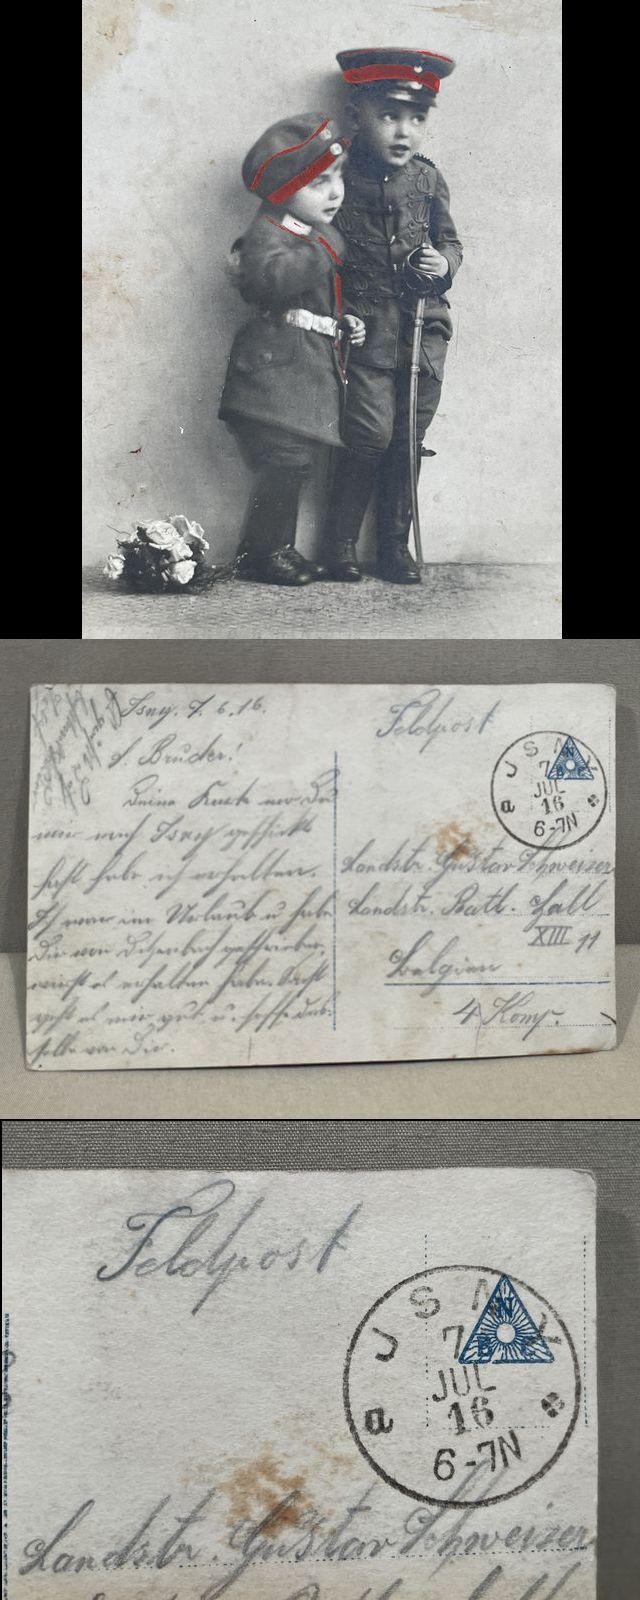 Isny, 7.6.16.
L. Bruder!
Deine Karte wo Du
mir nach Isny geschickt
hast habe ich erhalten.
Ich war im Urlaub u. habe
Dir von geschrieben,
wirst es erhalten haben. Sonst
geht es mir gut u. hoffe das-
selbe von Dir.
Feldpost
JSNY
7
JUL
16
6-7N
a
N
B
Landstr. Gustav Schweizer
Landstr. Batl. Hall
XIII 11
Belgien
4 Komp.
Feldpost
JSNY
7
JUL
16
6-7N
a
N
B
Landstr. Gustav Schweizer